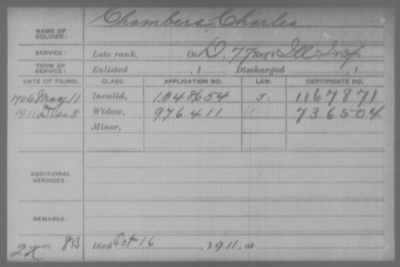 Chambers, Charles
NAME OF SOLDIER:
SERVICE: Late rank, Co. D, 77 Reg't Ill Inf
TERM OF SERVICE: Enlisted , 1 Discharged , 1
DATE OF FILING. CLASS. APPLICATION NO. LAW. CERTIFICATE NO.
1906 May 11 Invalid, 1348654 J. 1167871
1911 Dec 8 Widow, 976411 736504
Minor,
ADDITIONAL SERVICES:
REMARKS:
Died Oct 16, 1911, at